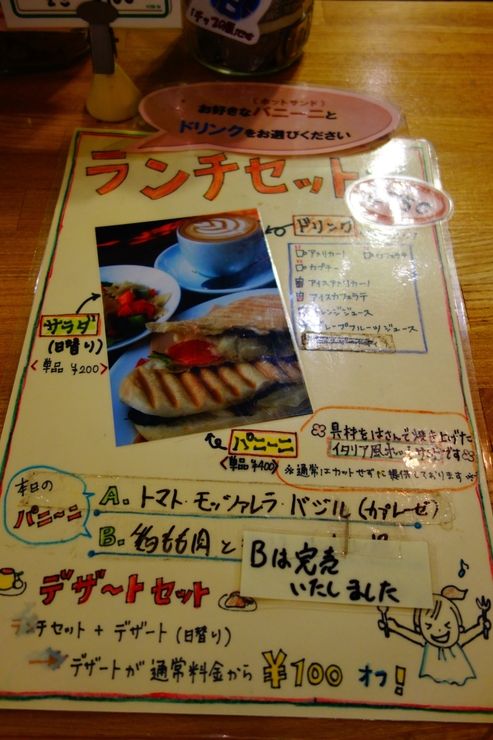 (ホットサンド)
お好きなパニーニと
ドリンクをお選びください
ランチセット
ドリンク
アメリカーノ
カプチーノ
アイスアメリカーノ
アイスカフェラテ
オレンジジュース
グレープフルーツジュース
サラダ
(日替り)
<単品 ¥200>
パニーニ
<単品 ¥400>
具材をはさんで焼き上げた
イタリア風
※通常はカットせずに提供しております※
本日の
パニーニ
A. トマト・モッツァレラ・バジル(カプレーゼ)
B. 鶏もも肉と
Bは完売
いたしました
デザートセット
ランチセット + デザート(日替り)
→ デザートが通常料金から ¥100 オフ!